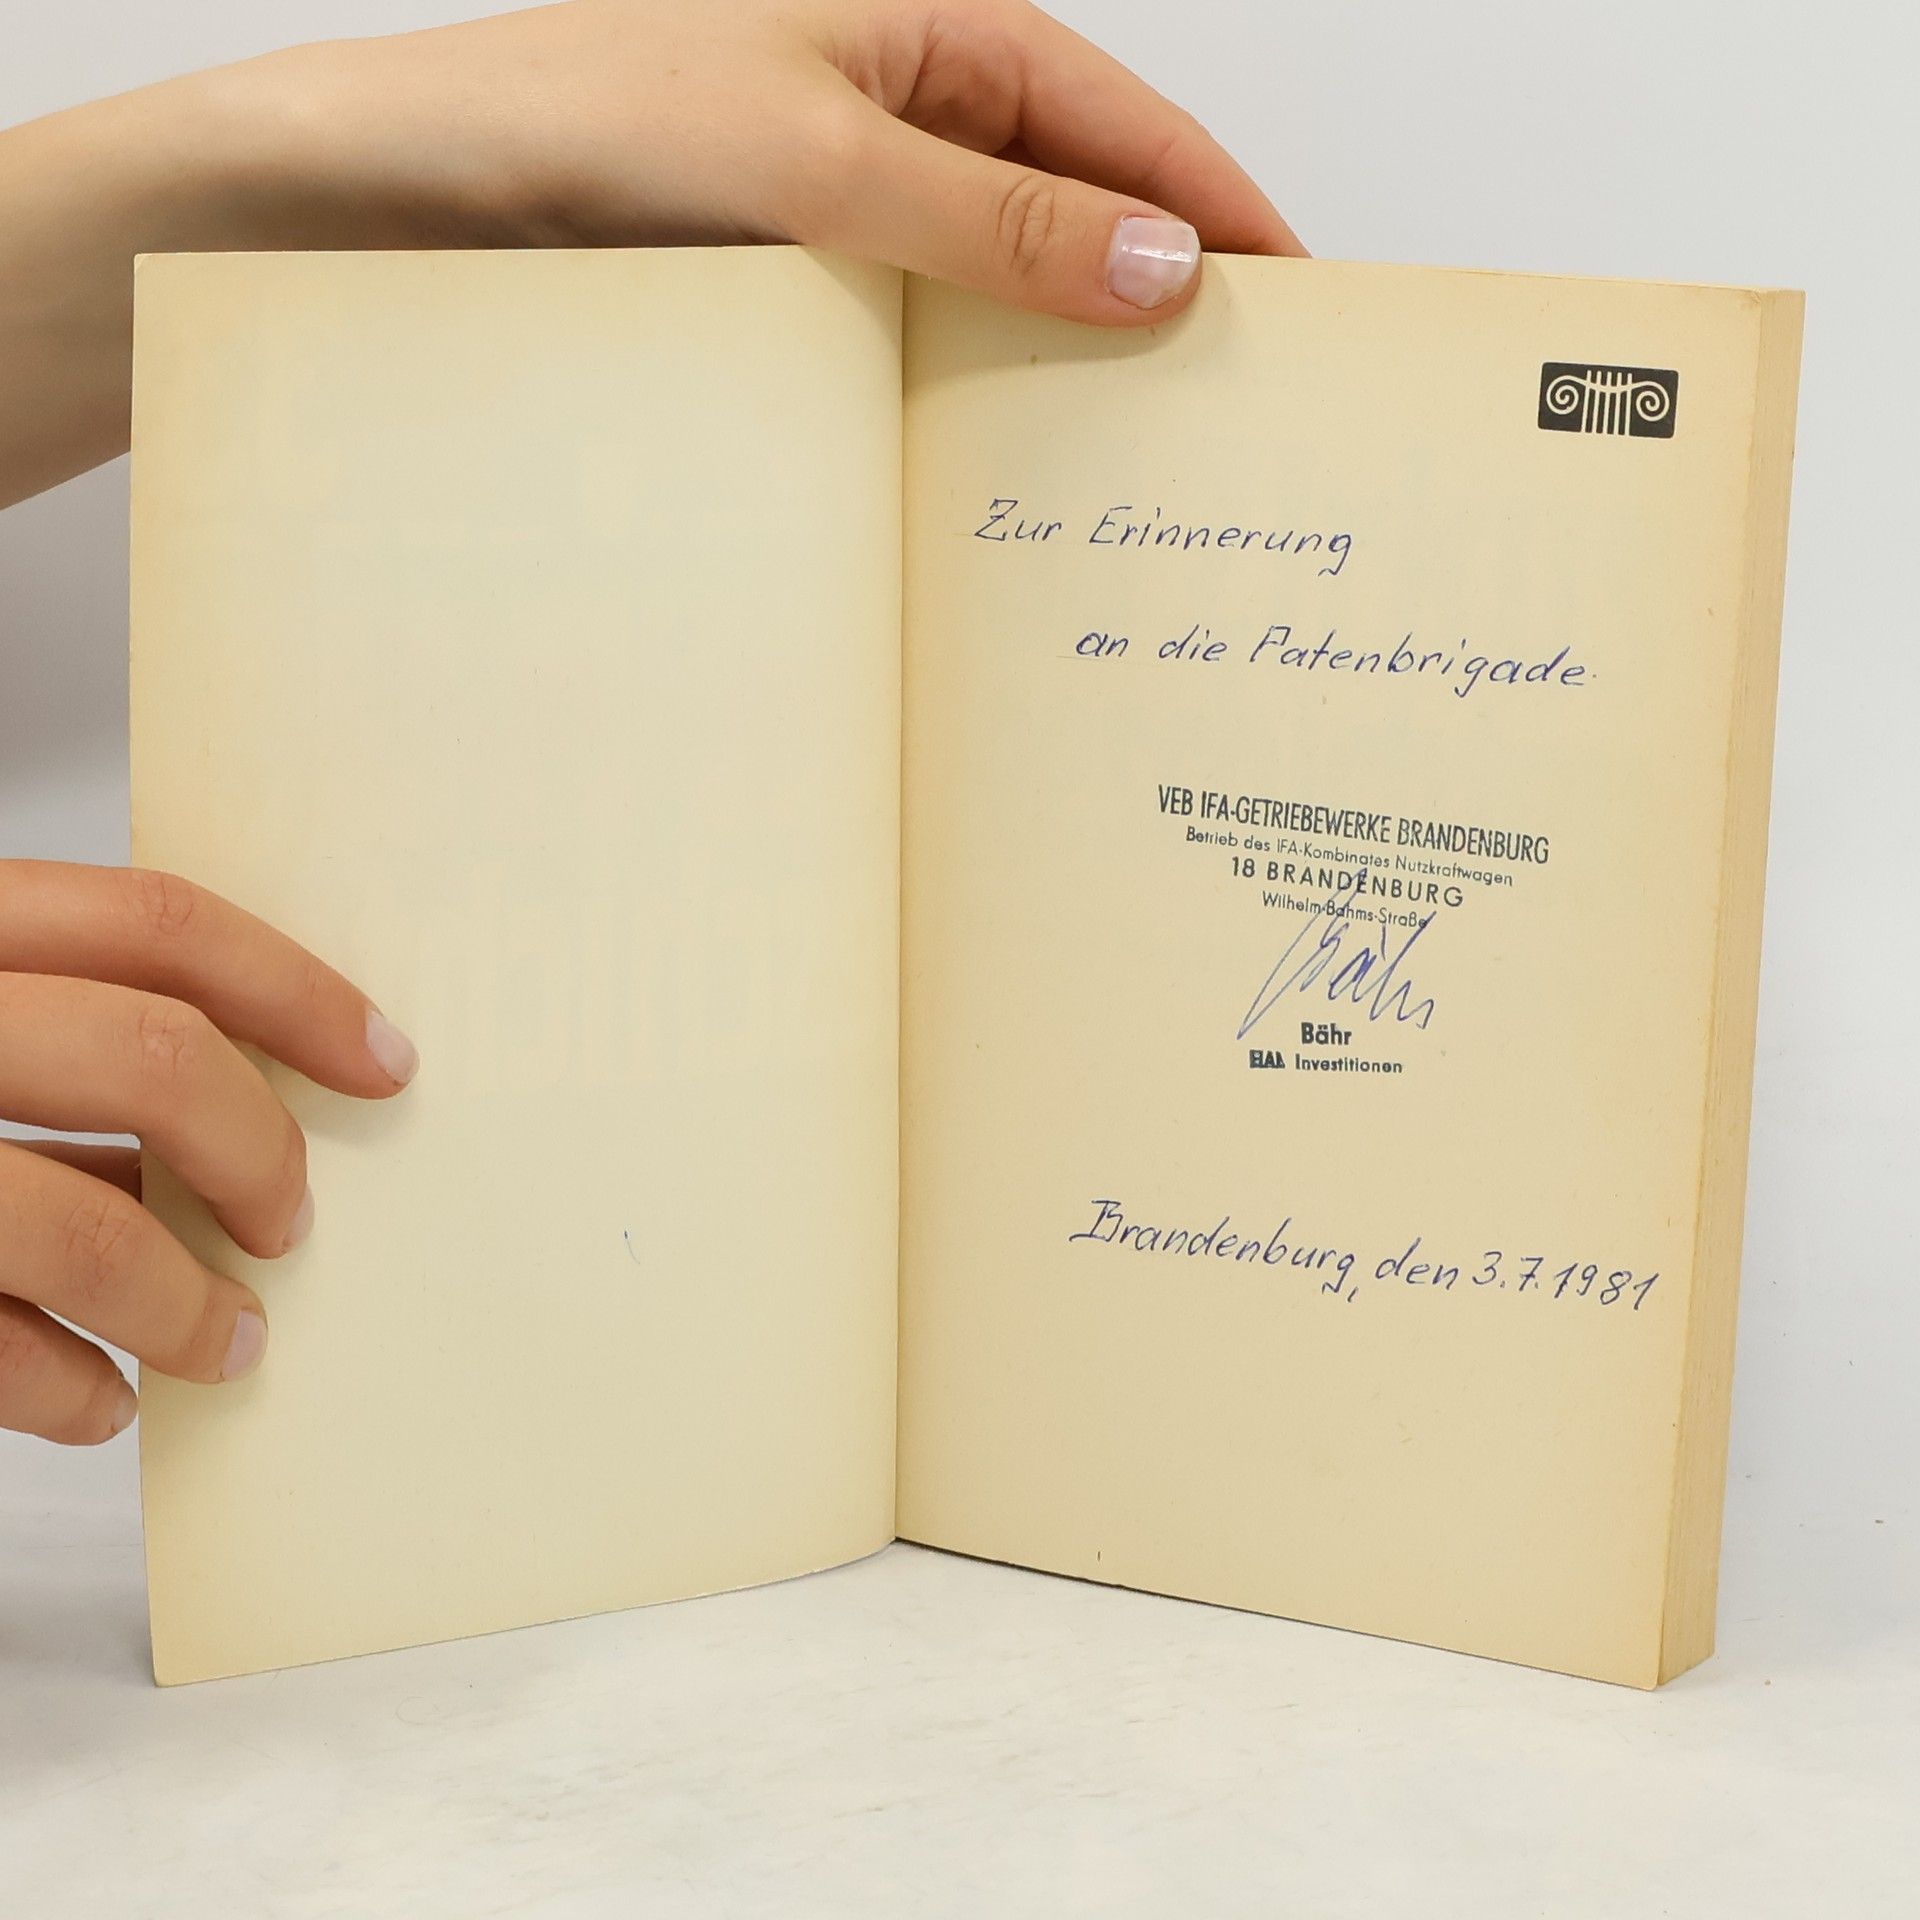 Zur Erinnerung
an die Patenbrigade
VEB IFA-GETRIEBEWERKE BRANDENBURG
Betrieb des IFA-Kombinates Nutzkraftwagen
18 BRANDENBURG
Wilhelm-Bahms-Straße
Bähr
Bähr
Investitionen
Brandenburg, den 3.7.1981